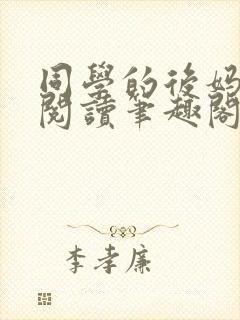 同學的後媽
閱讀筆趣閣
李孝廉